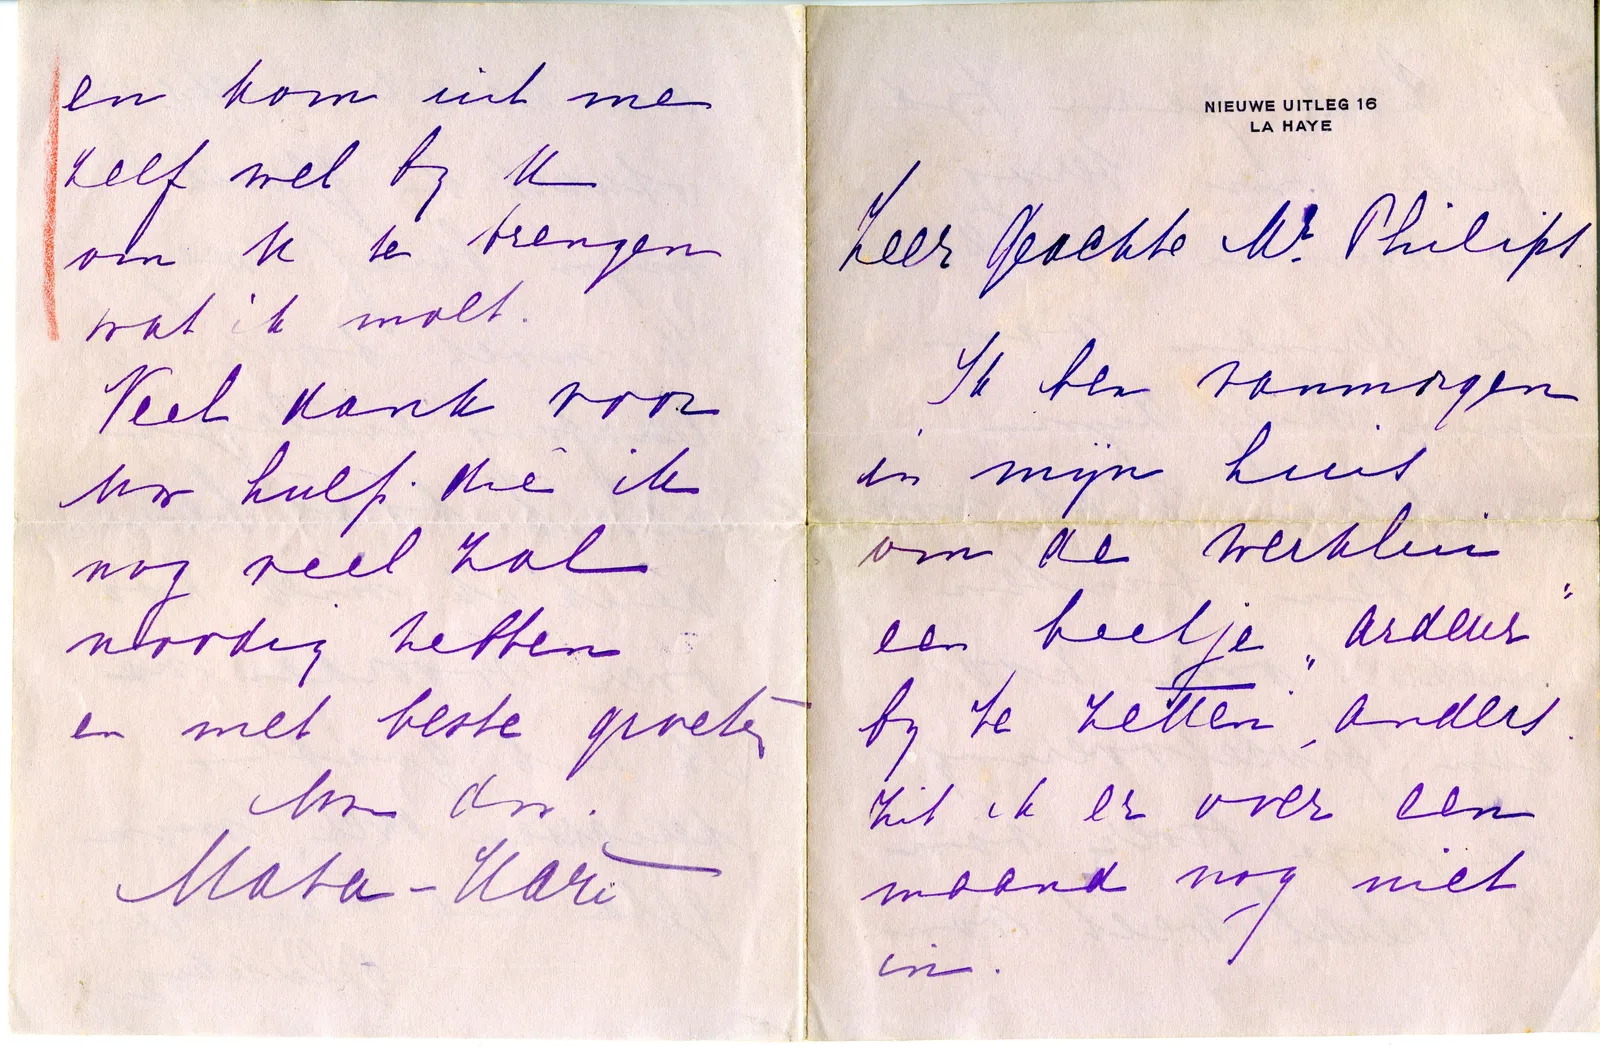 NIEUWE UITLEG 16
LA HAYE
Zeer Geachte Mr. Philips.
Ik ben vanmorgen
in mijn huis
om de werklui
een beetje „ardeur"
by te zetten, anders
zit ik er over een
maand nog niet
in.
en kom uit me
zelf wel by U
om U te brengen
wat ik moet.
Veel dank voor
Uw hulp. die ik
nog veel zal
noodig hebben
en met beste groeten
Uw dw.
Mata-Hari